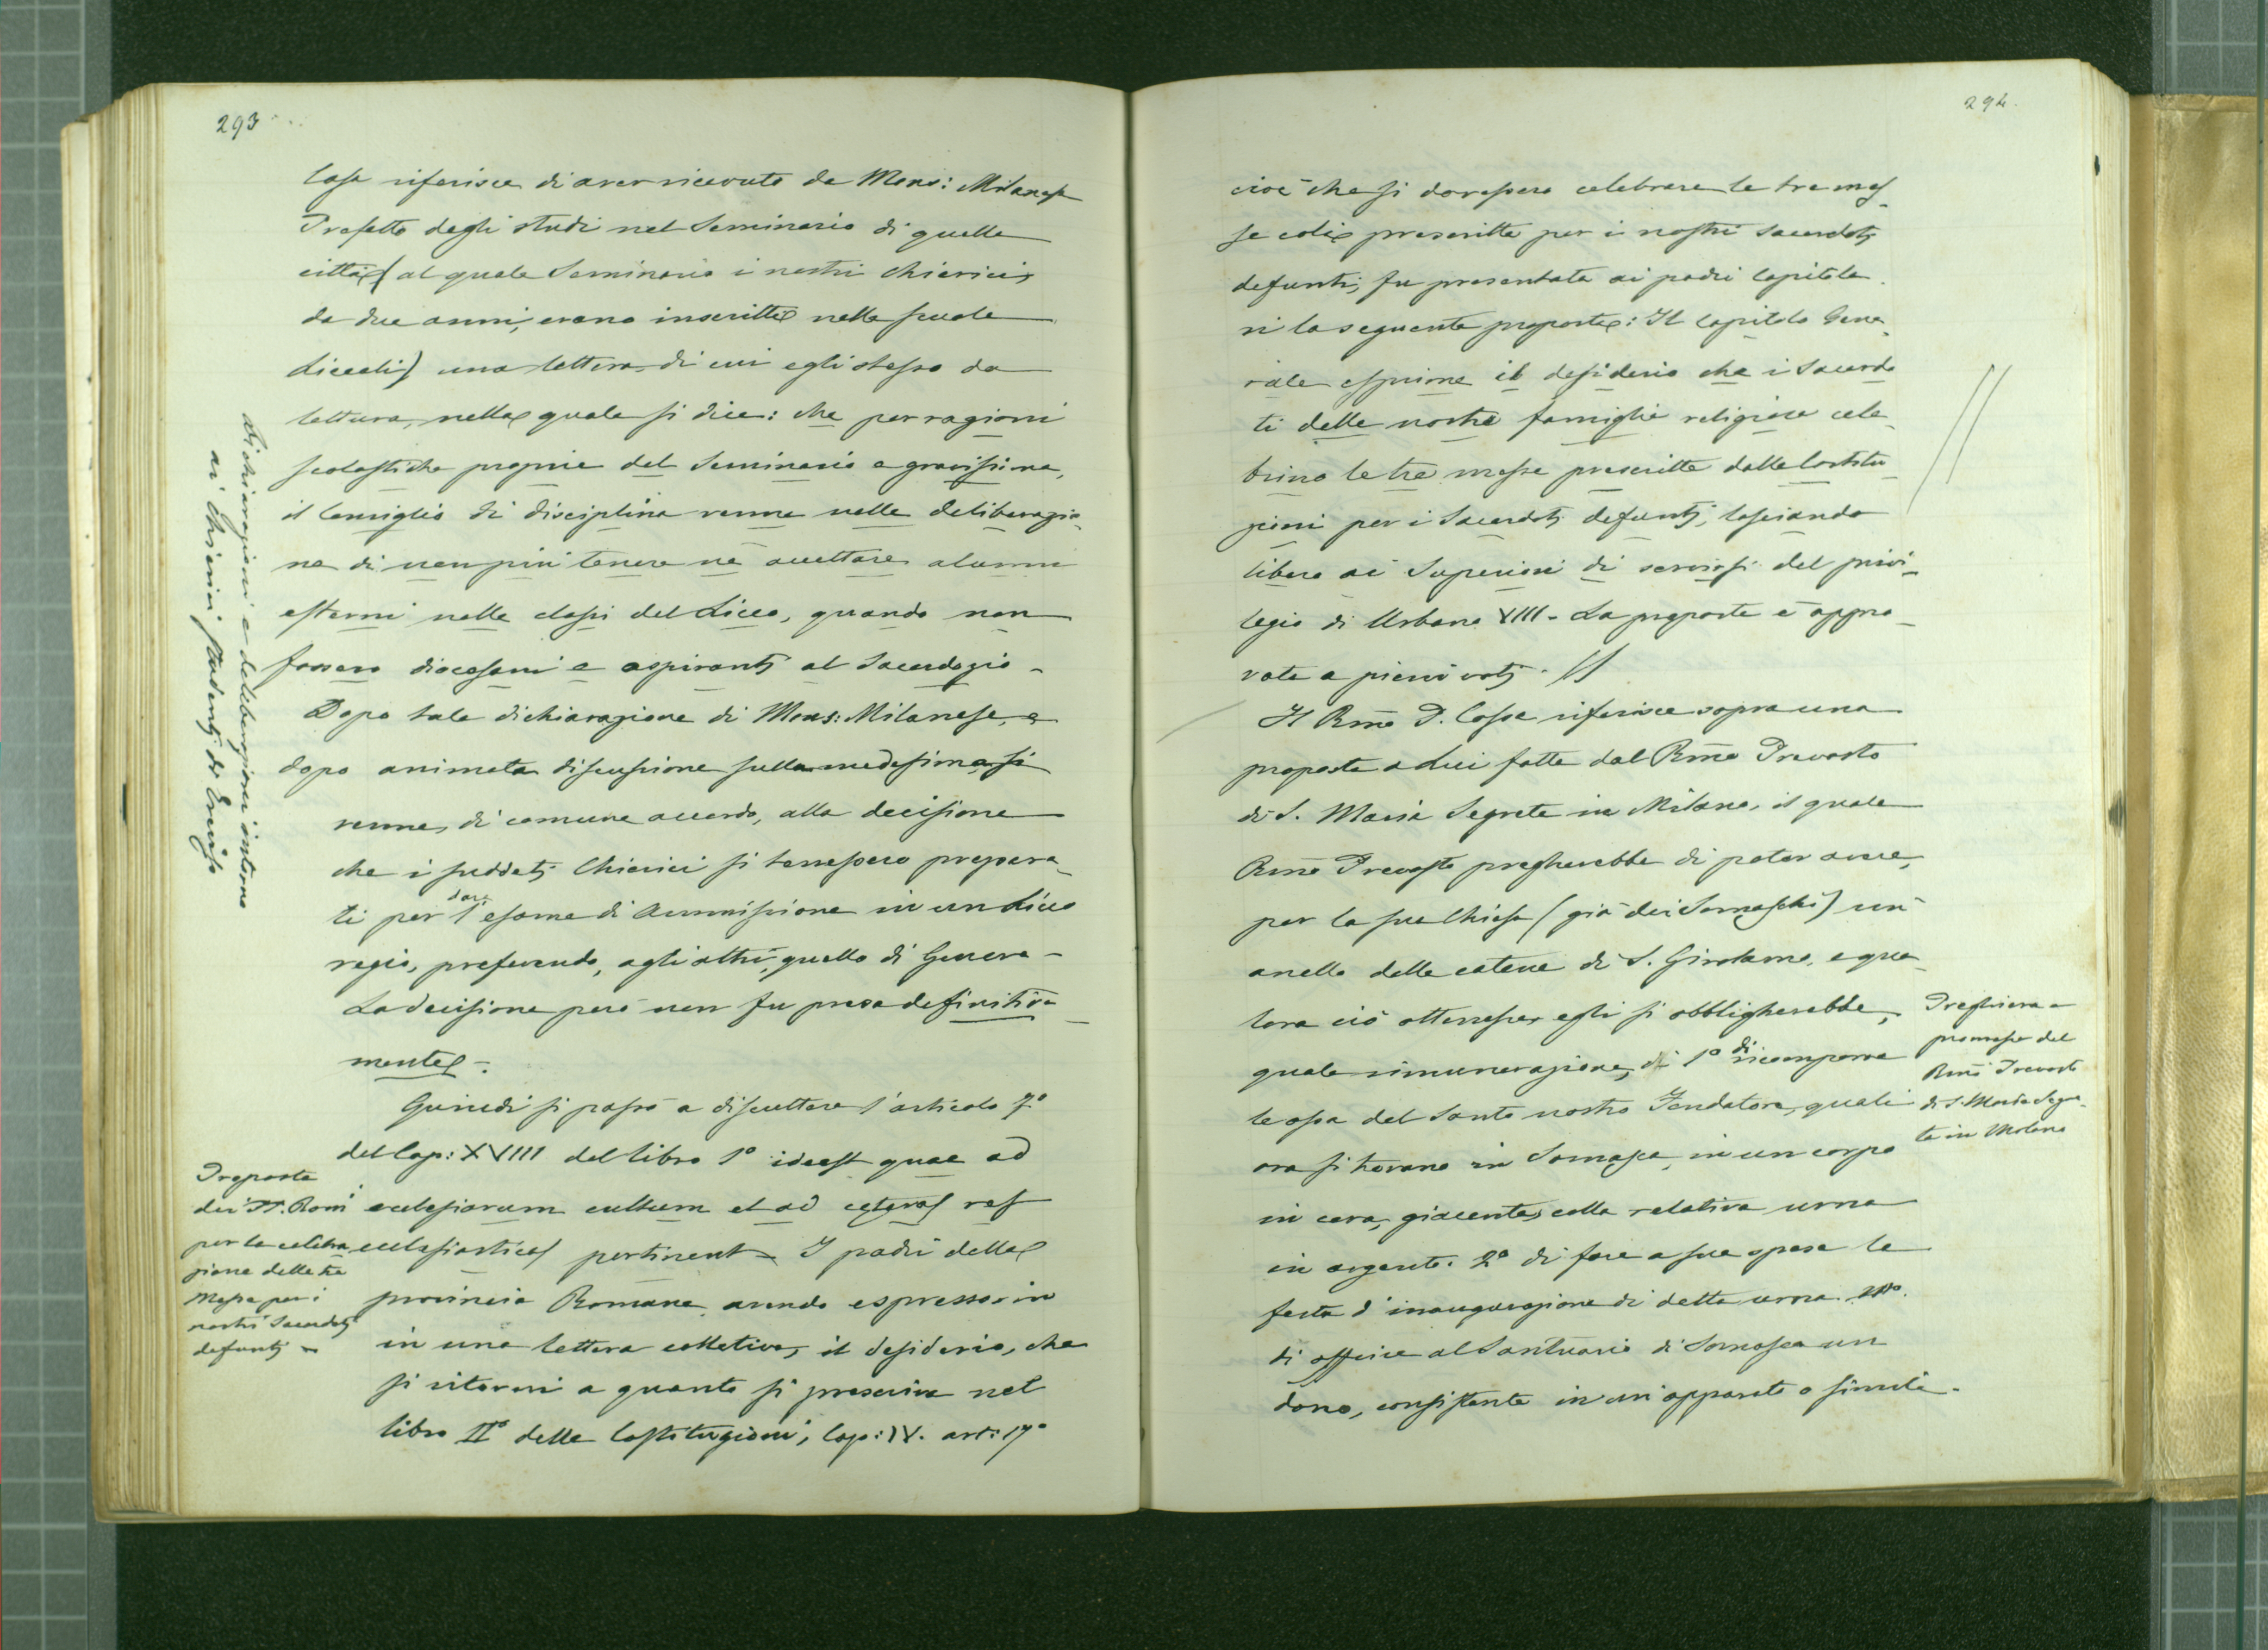 293
Cossa riferisce di aver ricevuto da Mons: Milanese
Prefetto degli studi nel Seminario di quella
città (al quale Seminario i nostri chierici,
da due anni, erano inscritti nella scuola
Liceali) una lettera, di cui egli stesso da
lettura, nella quale si dice: che per ragioni
scolastiche proprie del Seminario e gravissime,
il Consiglio di disciplina venne nella deliberazio-
ne di non più tenere nè accettare alunni
esterni nelle classi del Liceo, quando non
fossero diocesani e aspiranti al Sacerdozio -
Dopo tale dichiarazione di Mons: Milanese, e
dopo animata discussione sulla medesima, si
venne, di comune accordo, alla decisione
che i suddetti Chierici si tenessero prepara-
ti per dare l'esame di Ammissione in un Liceo
regio, preferendo, agli altri, quello di Genova -
La decisione però non fu presa definitiva-
mente -.
Quindi si passò a discuttere l'articolo 7°
del Cap: XVIII del libro 1° idest quae ad
ecclesiarum cultum et ad ceteras res
ecclesiasticas pertinent - I padri della
provincia Romana avendo espresso in
in una lettera collettiva, il desiderio, che
si ritorni a quanto si prescrive nel
libro II° delle Costituzioni, Cap: IV. art: 17°
Dichiarazioni e deliberazioni intorno
ai Chierici studenti di Treviso
Proposta
dei PP. Romi
per la celebra
zione delle tre
Messe per i
nostri Sacerdoti
defunti -
294.
cioè che si dovessero celebrare le tre mes-
se colà prescritte per i nostri sacerdoti
defunti, fu presentata ai padri Capitola-
ri la seguente proposta: Il Capitolo Gene-
rale esprime il desiderio che i Sacerdo
ti delle nostre famiglie religiose cele-
brino le tre messe prescritte dalle Costitu-
zioni per i Sacerdoti defunti, lasciando
libero ai Superiori di servirsi del privi-
legio di Urbano VIII - La proposta è appro-
vata a pieni voti. //
Il Rmo P. Cossa riferisce sopra una
proposta a lui fatta dal Rmo Prevosto
di S. Maria Segreta in Milano, il quale
Rmo Prevosto pregherebbe di poter avere,
per la sua Chiesa (già dei Somaschi) un
anello delle catene di S. Girolamo, e qua-
lora ciò ottenesse, egli si obbligherebbe,
quale rimunerazione, 1° di ricomporre
le ossa del Santo nostro Fondatore, quali
ora si trovano in Somasca, in un corpo
in cera, giacente, colla relativa urna
in argento. 2° di fare a sue spese la
festa d'inaugurazione di detta urna.
di offrire al Santuario di Somasca un
dono, consistente in un apparato o simile.
Preghiera e
promessa del
Rmo Prevosto
di S. Maria Segre-
ta in Milano